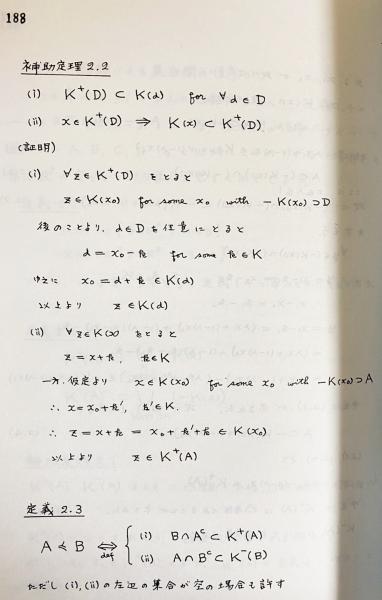 188
補助定理 2.2
(i) K⁺(D) ⊂ K(d) for ∀d∈D
(ii) x∈K⁺(D) ⇒ K(x) ⊂ K⁺(D)
(証明)
(i) ∀z∈K⁺(D) をとると
z∈K(x₀) for some x₀ with −K(x₀)⊃D
後のことより、d∈D を任意にとると
d = x₀−k for some k∈K
ゆえに x₀ = d+k ∈ K(d)
以上より z∈K(d)
(ii) ∀z∈K(x) をとると
z = x+k, k∈K
一方、仮定より x∈K(x₀) for some x₀ with −K(x₀)⊃A
∴ x = x₀+k′, k′∈K.
∴ z = x+k = x₀+k′+k ∈ K(x₀)
以上より z∈K⁺(A)
定義 2.3
A ≼ B ⇔def { (i) B∩Aᶜ ⊂ K⁺(A)
(ii) A∩Bᶜ ⊂ K⁻(B)
ただし (i), (ii) の左辺の集合が空の場合も許す